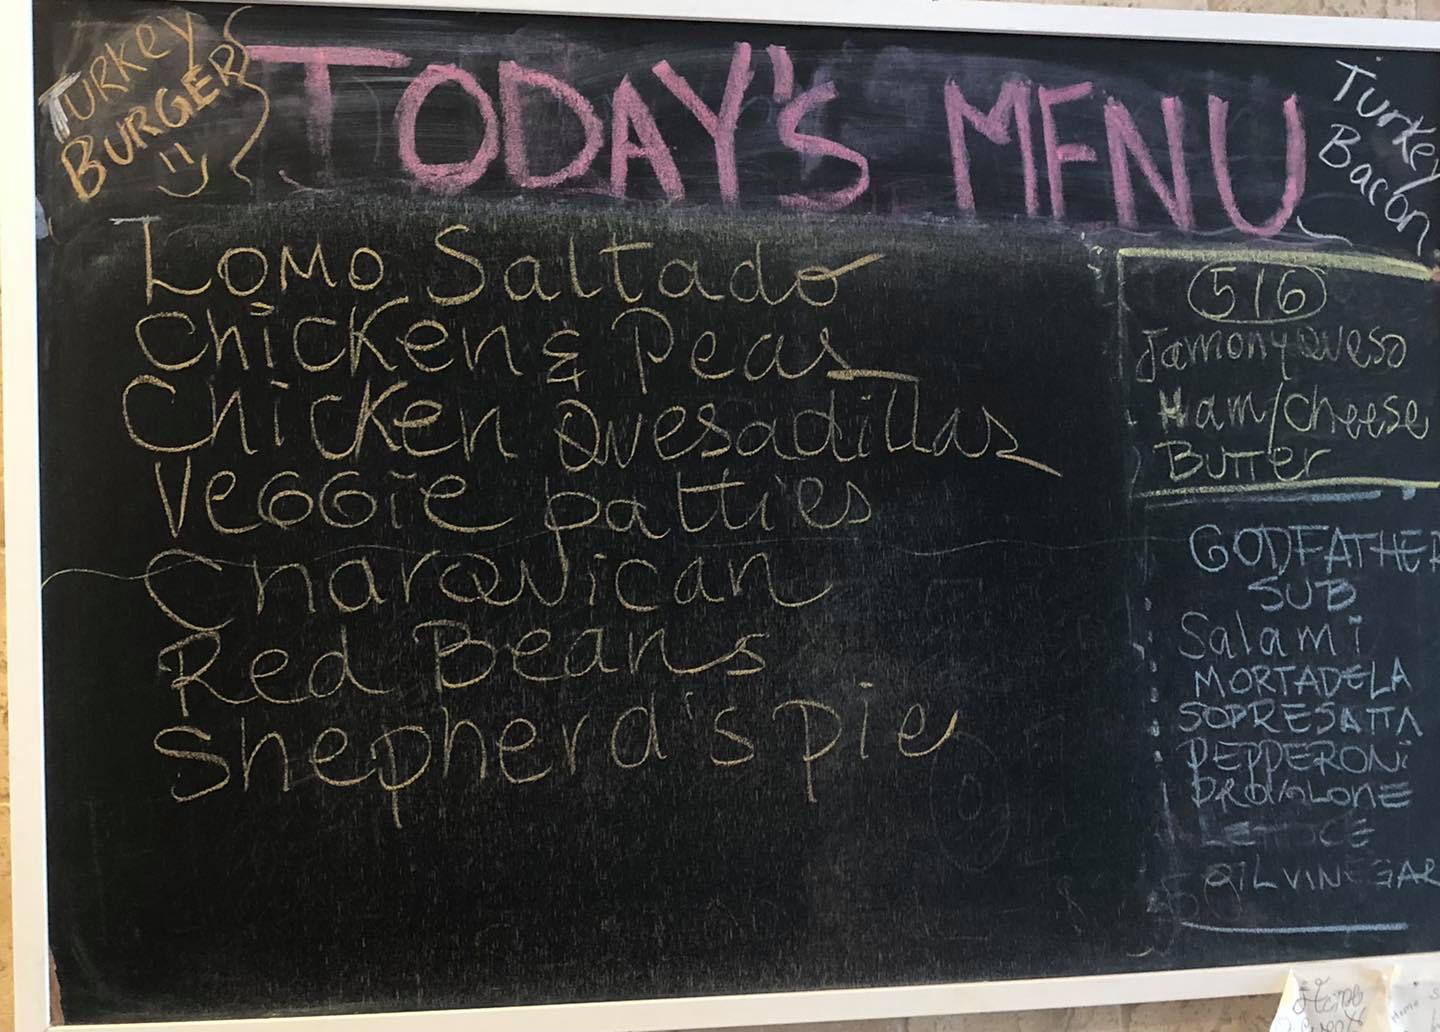 TURKEY
BURGER
TODAY'S MENU
Turkey
Bacon
Lomo Saltado
Chicken & Peas
Chicken Quesadillas
Veggie patties
Charquican
Red Beans
Shepherd's pie
516
Jamon y queso
Ham/cheese
Butter
GODFATHER
SUB
Salami
MORTADELA
SOPRESATTA
PEPPERONI
PROVALONE
LETTUCE
OIL VINEGAR